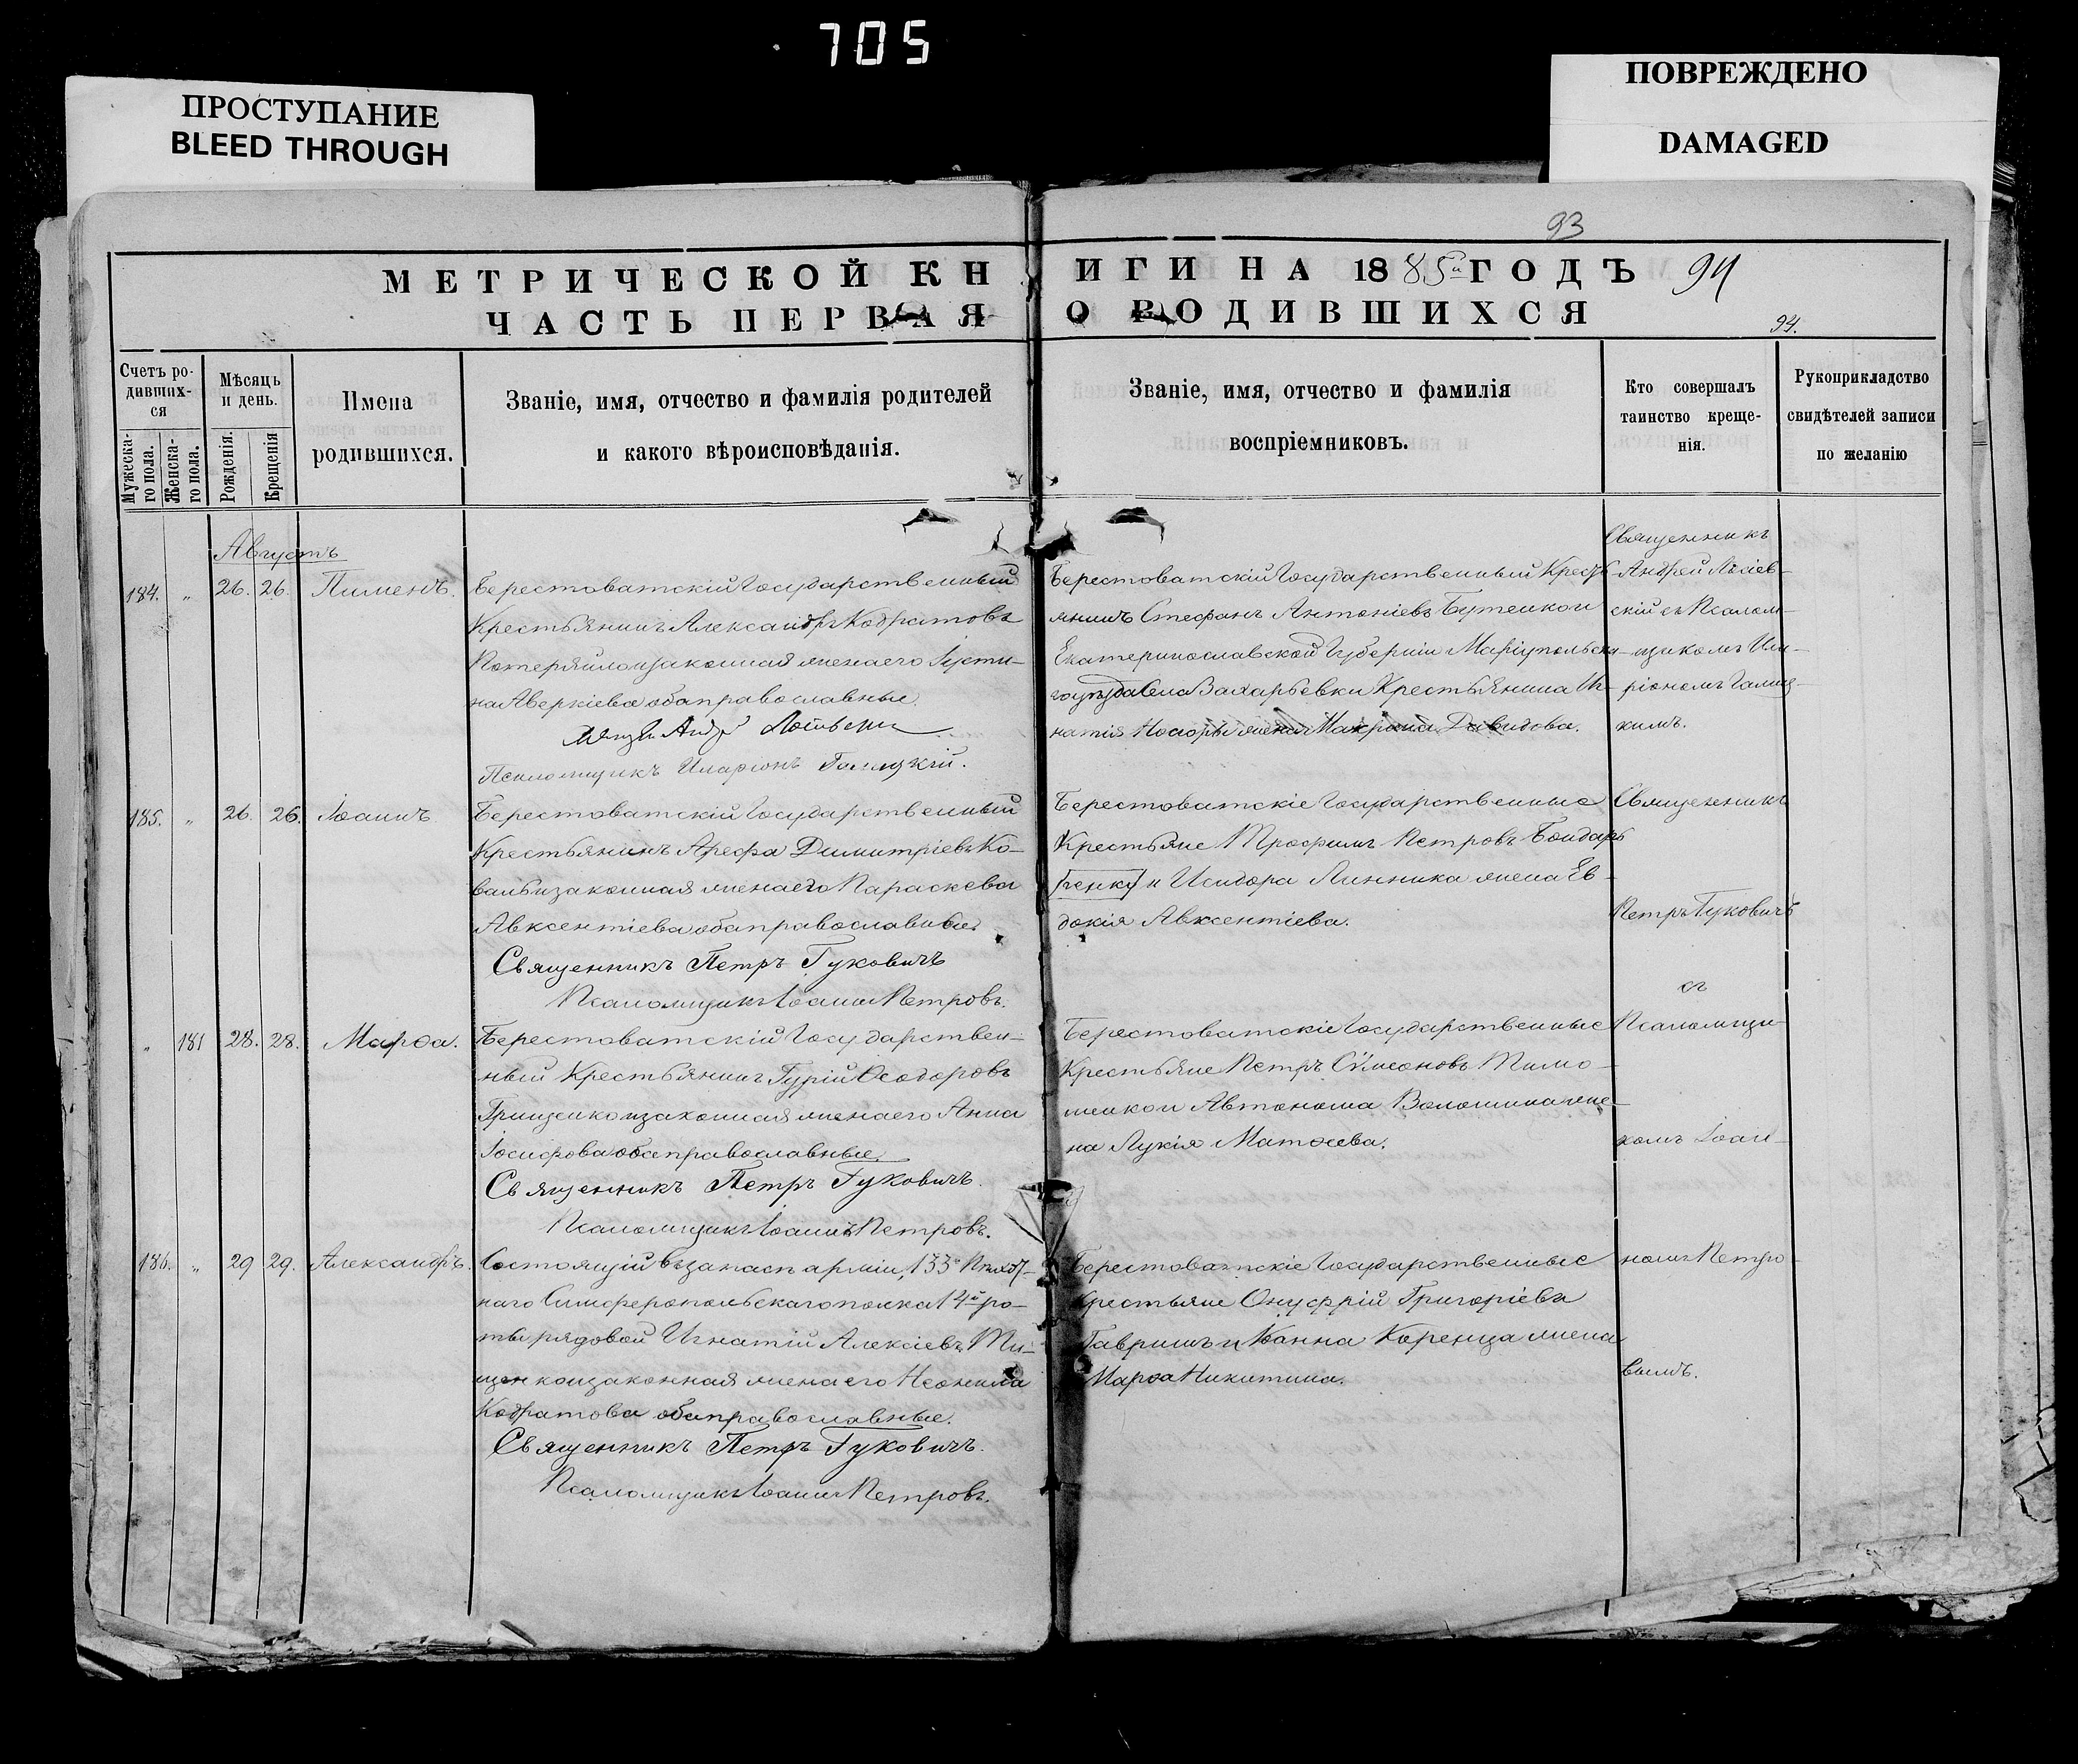 705
ПРОСТУПАНИЕ
BLEED THROUGH
ПОВРЕЖДЕНО
DAMAGED
93
МЕТРИЧЕСКОЙ КНИГИ НА 1885й ГОДЪ 94
ЧАСТЬ ПЕРВАЯ О РОДИВШИХСЯ
94.
Счетъ ро-
дивших-
ся
Мужеска-
го пола.
Женска-
го пола.
Мѣсяцъ
и день.
Рожденія.
Крещенія
Имена
родившихся.
Званіе, имя, отчество и фамилія родителей
и какого вѣроисповѣданія.
Званіе, имя, отчество и фамилія
воспріемниковъ.
Кто совершалъ
таинство креще-
нія.
Рукоприкладство
свидѣтелей записи
по желанію
Августъ
184. „ 26. 26. Пименъ.
Берестоватскій Государственный
Крестьянинъ Александръ Кодратовъ
Потеряйло и законная жена его Іусти-
на Аверкіева оба православные.
Псаломщикъ Иларіонъ Галицкій.
Берестоватскій Государственный Кресть
янинъ Стефанъ Антоніевъ Бутенко и
Екатеринославской Губерніи Маріупольска-
го уѣзда Села Захарьевки Крестьянина Иг-
натія Носоры жена Макрина Давидова.
Священникъ
Андрей Лосіев-
скій съ Псалом-
щикомъ Ила-
ріономъ Галиц-
кимъ.
185. „ 26. 26. Іоаннъ
Берестоватскій Государственный
Крестьянинъ Арефа Димитріевъ Ко-
валь и законная жена его Параскева
Авксентіева оба православные.
Священникъ Петръ Гуковичъ
Псаломщикъ Іоаннъ Петровъ.
Берестоватскіе Государственные
Крестьяне Трофимъ Петровъ Бондарь
[ченко] и Исидора Линника жена Ев-
докія Авксентіева.
Священникъ
Петръ Гуковичъ
съ
Псаломщи-
комъ Іоан-
номъ Петро-
вымъ.
„ 181 28. 28. Марѳа.
Берестоватскій Государствен-
ный Крестьянинъ Гурій Ѳеодоровъ
Грищенко и законная жена его Анна
Іосифова оба православные.
Священникъ Петръ Гуковичъ.
Псаломщикъ Іоаннъ Петровъ.
Берестоватскіе Государственные
Крестьяне Петръ Сѵмеоновъ Тимо-
шенко и Автонома Волошина же-
на Лукія Матѳеева.
186. „ 29 29. Александръ.
Состоящій въ запасѣ арміи, 133го Пѣхот-
наго Симферопольскаго полка 14й ро-
ты рядовой Игнатій Алексіевъ Ти-
щенко и законная жена его Неонила
Кодратова оба православные.
Священникъ Петръ Гуковичъ.
Псаломщикъ Іоаннъ Петровъ.
Берестоватскіе Государственные
Крестьяне Онуфрій Григоріевъ
Гавришъ и Іоанна Коренца жена
Марѳа Никитина.